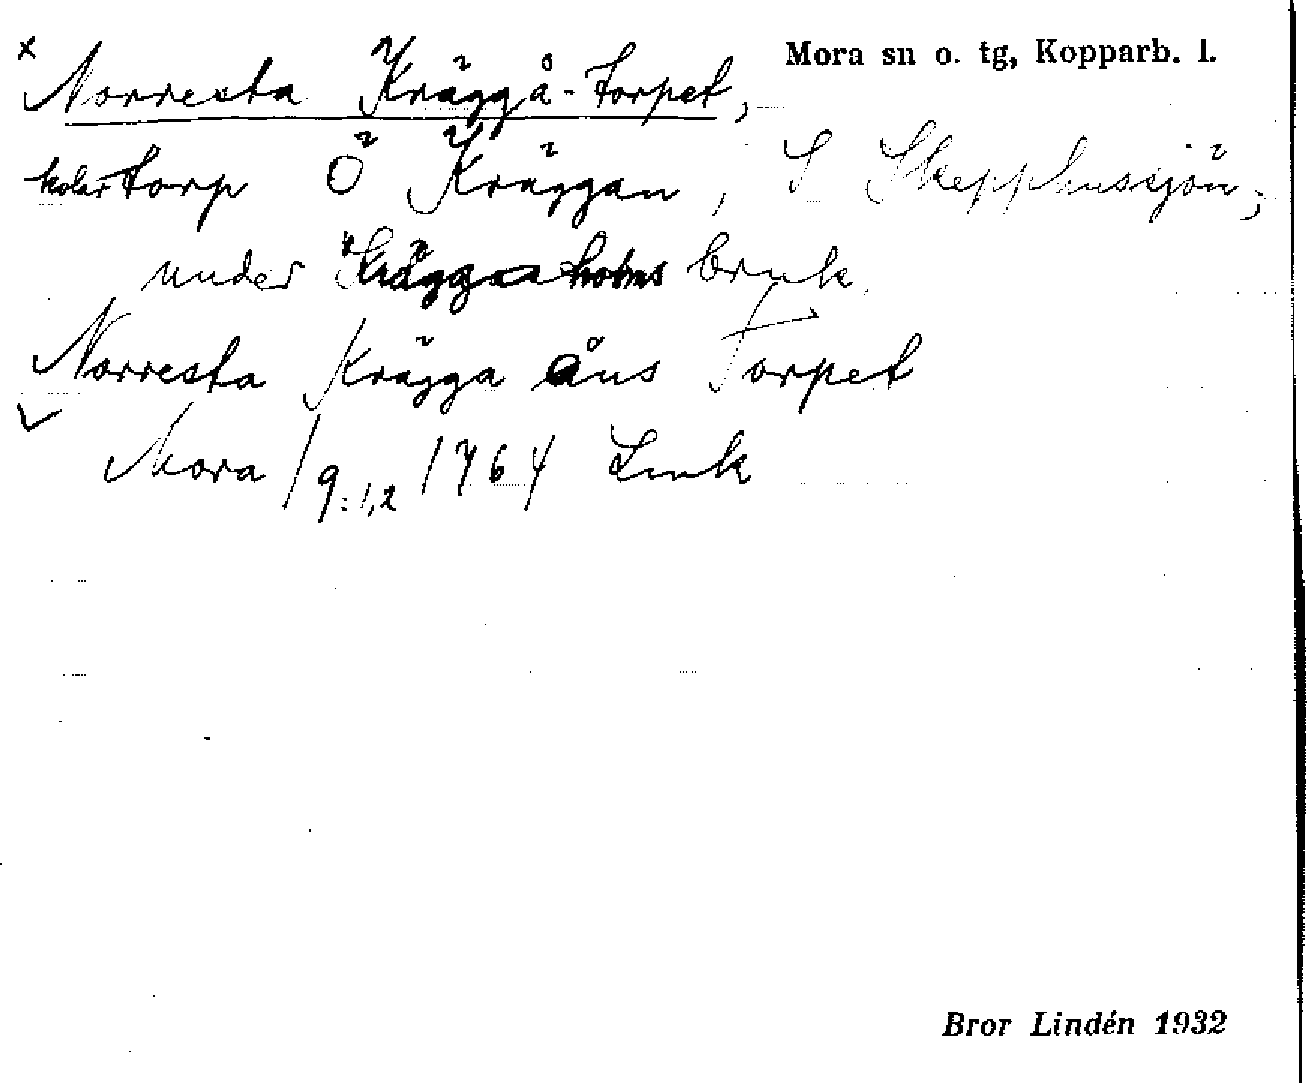 x Norresta Kräggå-torpet, Mora sn o. tg, Kopparb. l.
kolartorp Ö Kräggan, S Skepphussjön;
under Kräggaholms bruk.
Norresta Krägga åns Torpet
Mora / 9:1,2 1764 Link
Bror Lindén 1932